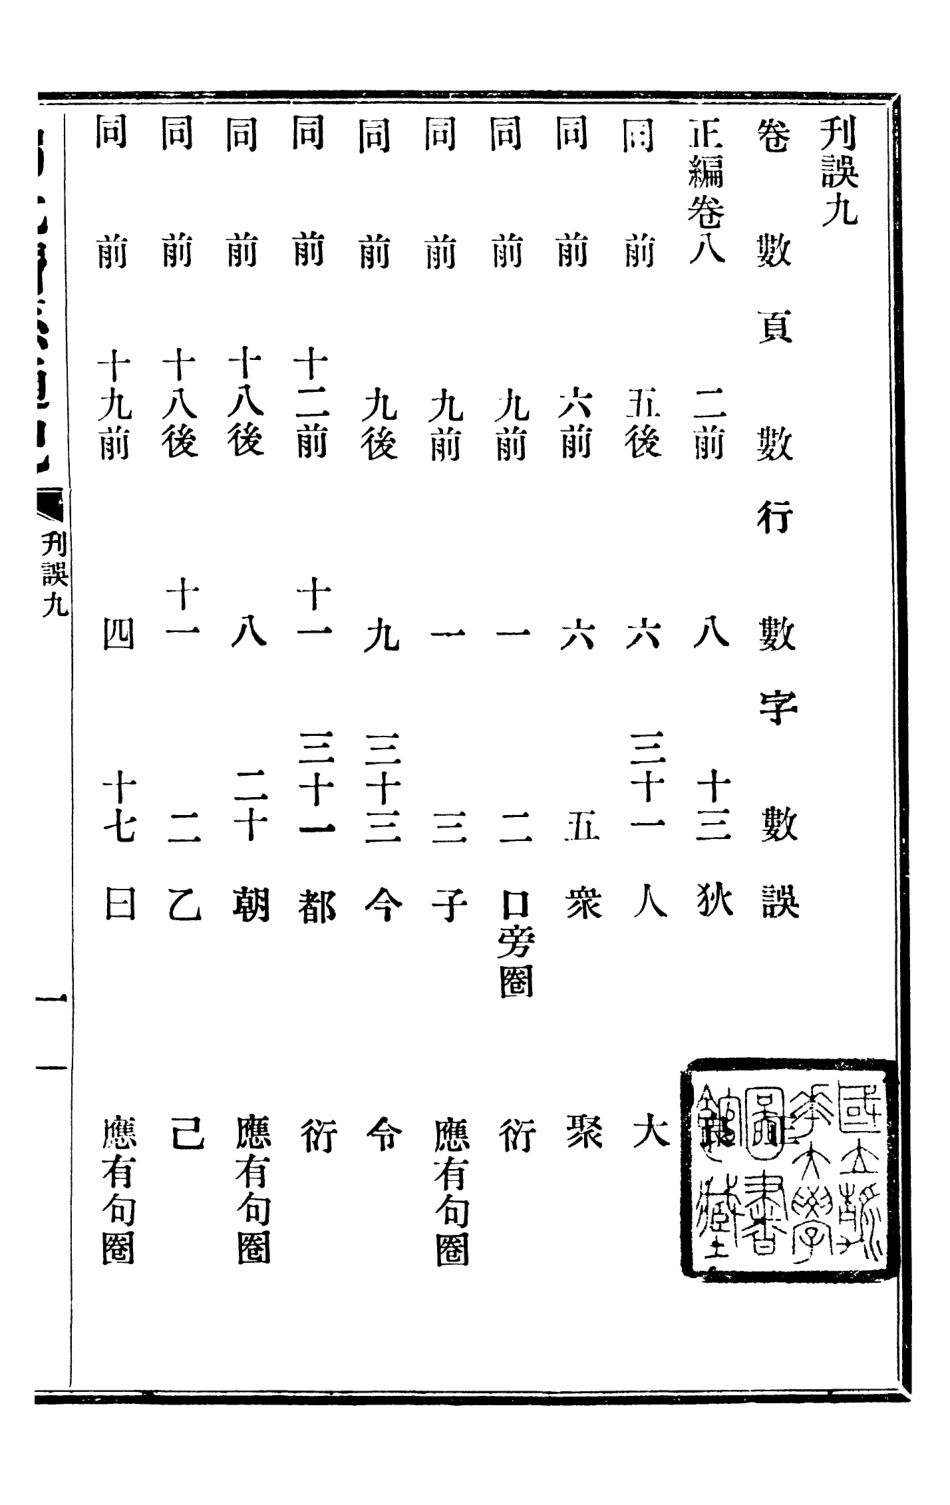 刊誤九
卷數 頁數 行數 字數 誤 正
正編卷八 二前 八 十三 狄
同前 五後 六 三十一 人 大
同前 六前 六 五 衆 聚
同前 九前 一 二 口旁圈 衍
同前 九前 一 三 子 應有句圈
同前 九後 九 三十三 今 令
同前 十二前 十一 三十一 都 衍
同前 十八後 八 二十 朝 應有句圈
同前 十八後 十一 二 乙 己
同前 十九前 四 十七 曰 應有句圈
刊誤九
一
國立清華大學圖書館藏